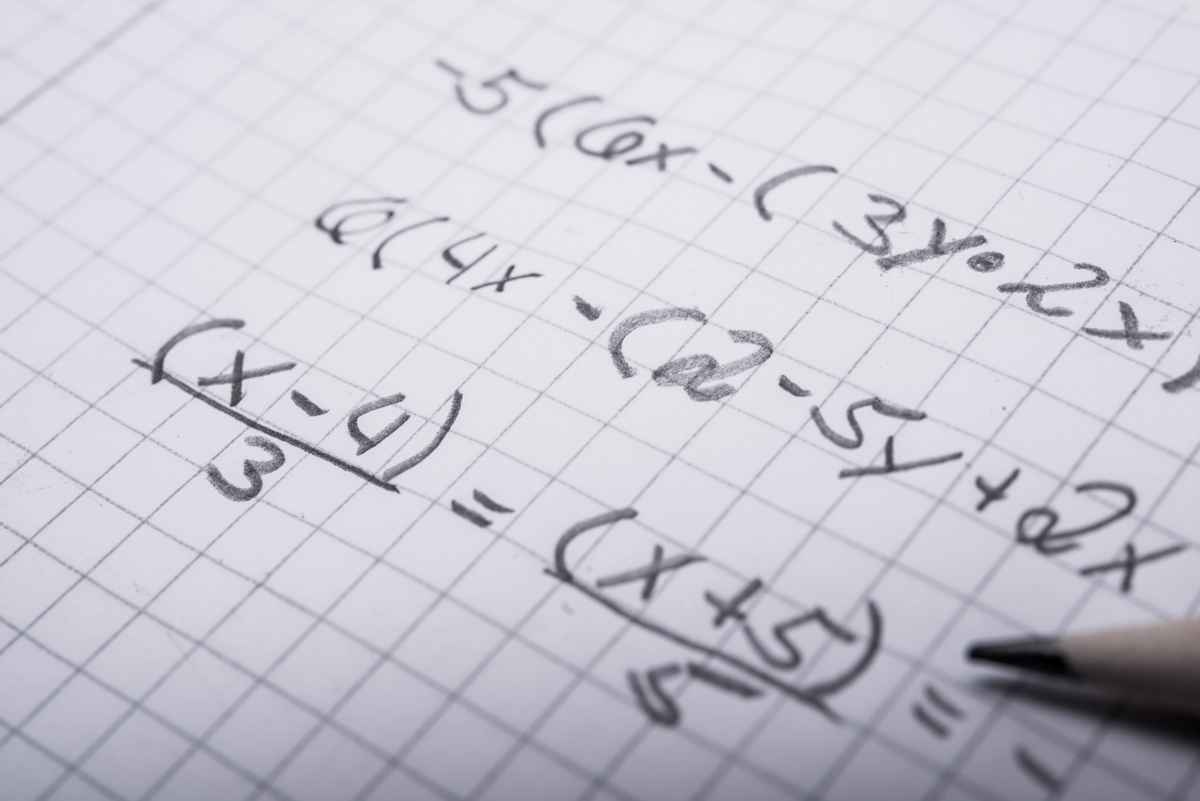 -5(6x-(3y•2x)
6(4x-(2-5y+2x
(x-4)/3 = (x+5)/5 =